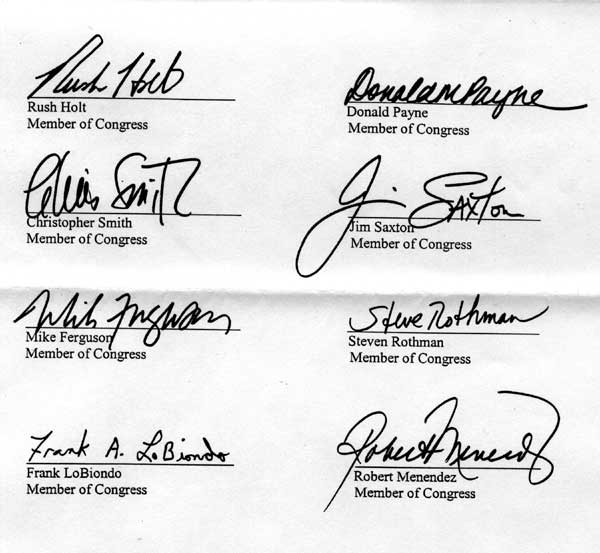 Rush Holt
Rush Holt
Member of Congress
Donald M Payne
Donald Payne
Member of Congress
Chris Smith
Christopher Smith
Member of Congress
Jim Saxton
Jim Saxton
Member of Congress
Mike Ferguson
Mike Ferguson
Member of Congress
Steve Rothman
Steven Rothman
Member of Congress
Frank A. LoBiondo
Frank LoBiondo
Member of Congress
Robert Menendez
Robert Menendez
Member of Congress